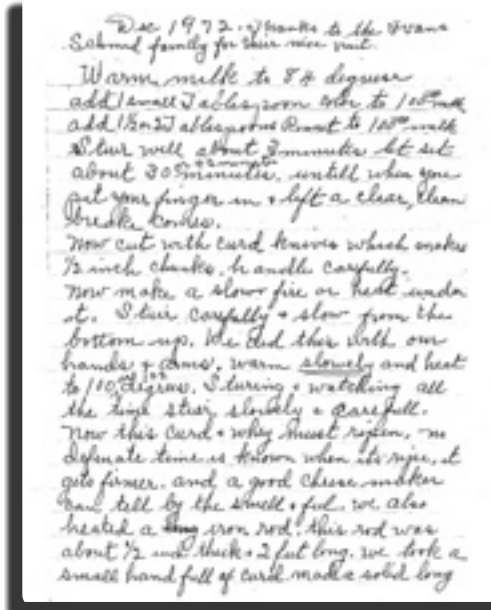 Dec 1972. Thanks to the Evans
Schmid family for their nice visit.
Warm milk to 84 degrees
add 1 small Tablespoon color to 100# milk
add 1½ or 2 Tablespoons Rennet to 100# milk
Stur well about 3 minutes let set
about 30 minutes, untill when you
put your finger in + lift a clear, clean
breake comes.
Now cut with curd knives which makes
½ inch chunks, handle carefully.
Now make a slow fire or heat under
it. Stuir carefully + slow from the
bottom up. We did this with our
hands + arms, warm slowely and heat
to 110 degrees. Sturing + watching all
the time stuir slowely + carefull.
Now this curd + whey must ripen, no
defenate time is known when its ripe, it
gets firmer. and a good cheese maker
can tell by the smell + feel. we also
heated a iron rod, this rod was
about ½ inch thick + 2 feet long. we took a
small hand full of curd made a solid long